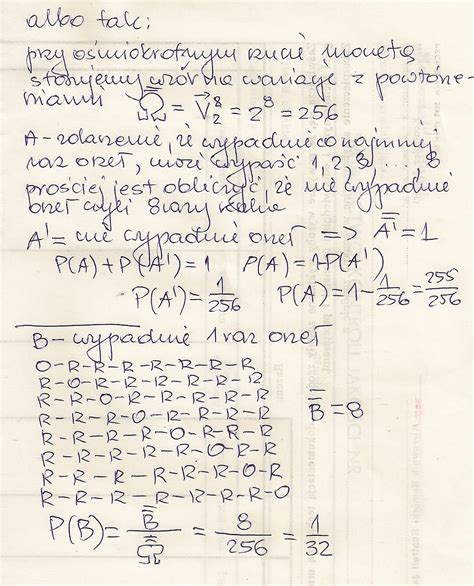 albo tak:
przy ośmiokrotnym rzucie monetą
stosujemy wzór na wariacje z powtórze-
niami Ω̿ = V⃗₂⁸ = 2⁸ = 256
A - zdarzenie, że wypadnie co najmniej
raz orzeł, może wypaść 1, 2, 3 ..... 8
prościej jest obliczyć, że nie wypadnie
orzeł czyli 8 razy reszka
A' = nie wypadnie orzeł => A̿' = 1
P(A) + P(A') = 1 P(A) = 1-P(A')
P(A') = 1/256 P(A) = 1 - 1/256 = 255/256
B - wypadnie 1 raz orzeł
O-R-R-R-R-R-R-R
R-O-R-R-R-R-R-R
R-R-O-R-R-R-R-R
R-R-R-O-R-R-R-R
R-R-R-R-O-R-R-R
R-R-R-R-R-O-R-R
R-R-R-R-R-R-O-R
R-R-R-R-R-R-R-O
B̿ = 8
P(B) = B̿/Ω̿ = 8/256 = 1/32